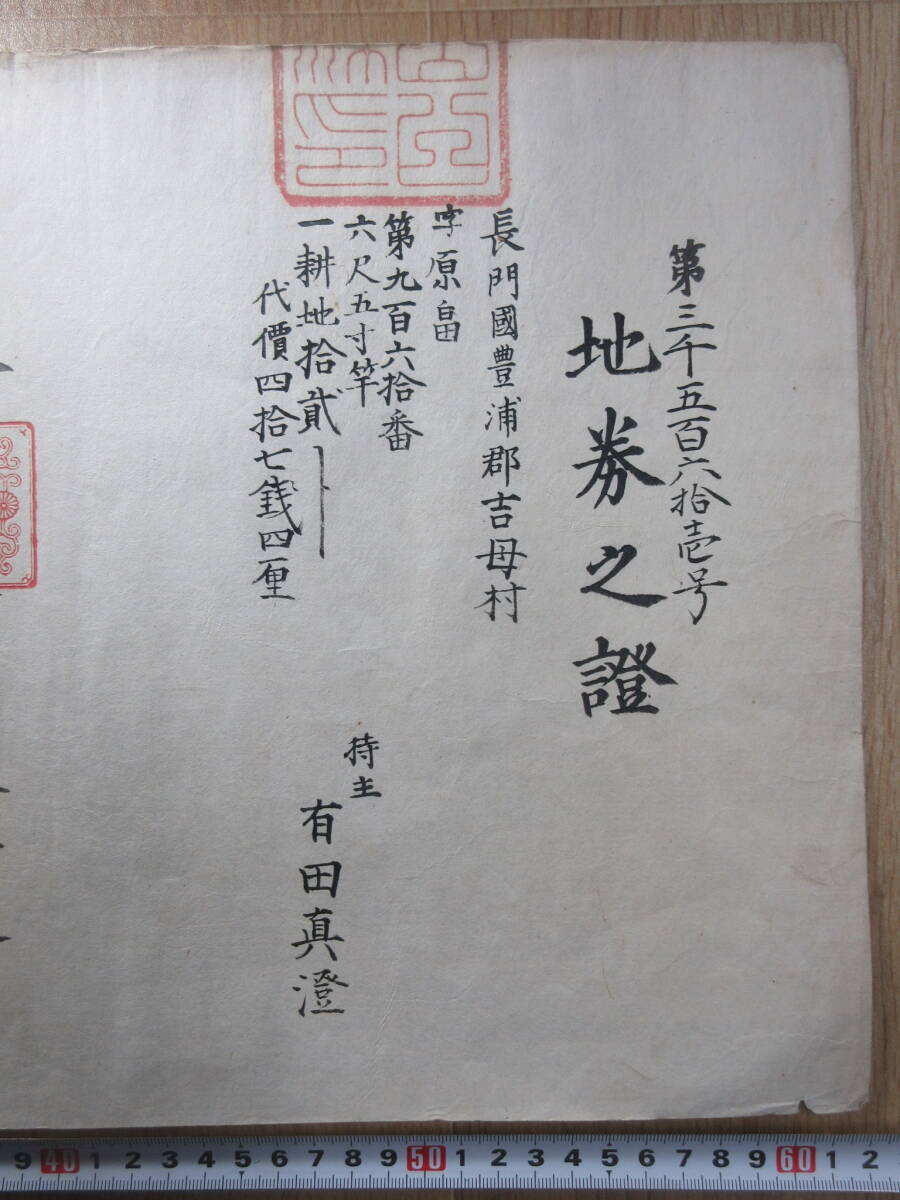 第三千五百六拾壱号
地券之證
長門國豊浦郡吉母村
字原畠
第九百六拾番
六尺五寸竿
一耕地拾貳
代價四拾七錢四厘
持主
有田真澄
9 40 1 2 3 4 5 6 7 8 9 50 1 2 3 4 5 6 7 8 9 60 1 2